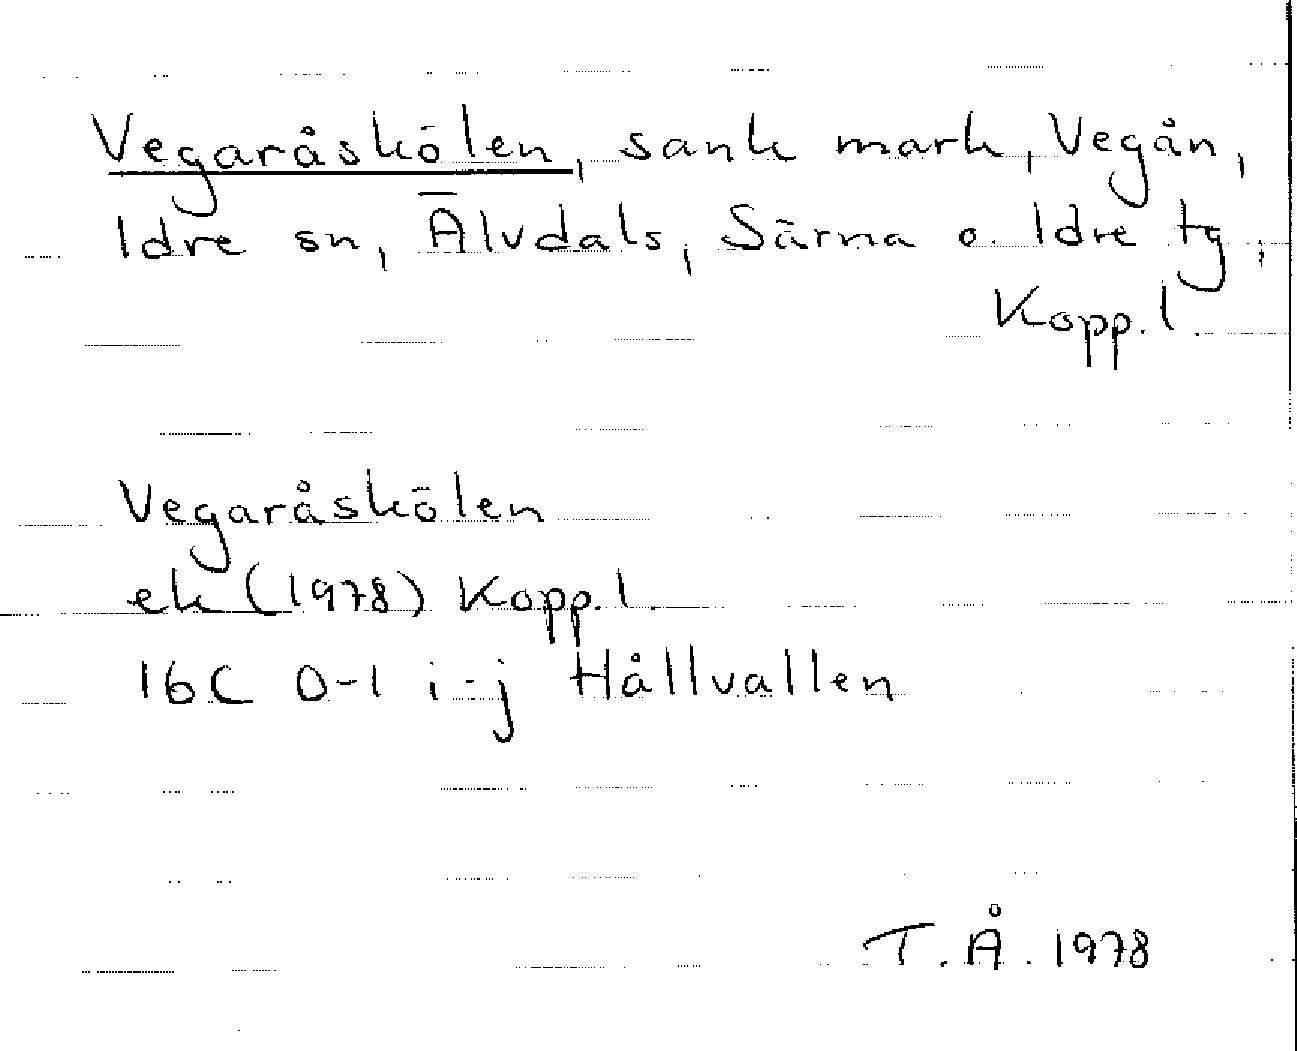 Vegaråskölen, sank mark, Vegån,
Idre sn, Älvdals, Särna o. Idre tg,
Kopp. l.
Vegaråskölen
ek (1978) Kopp. l.
16C 0-1 i-j Hållvallen
T. Å. 1978